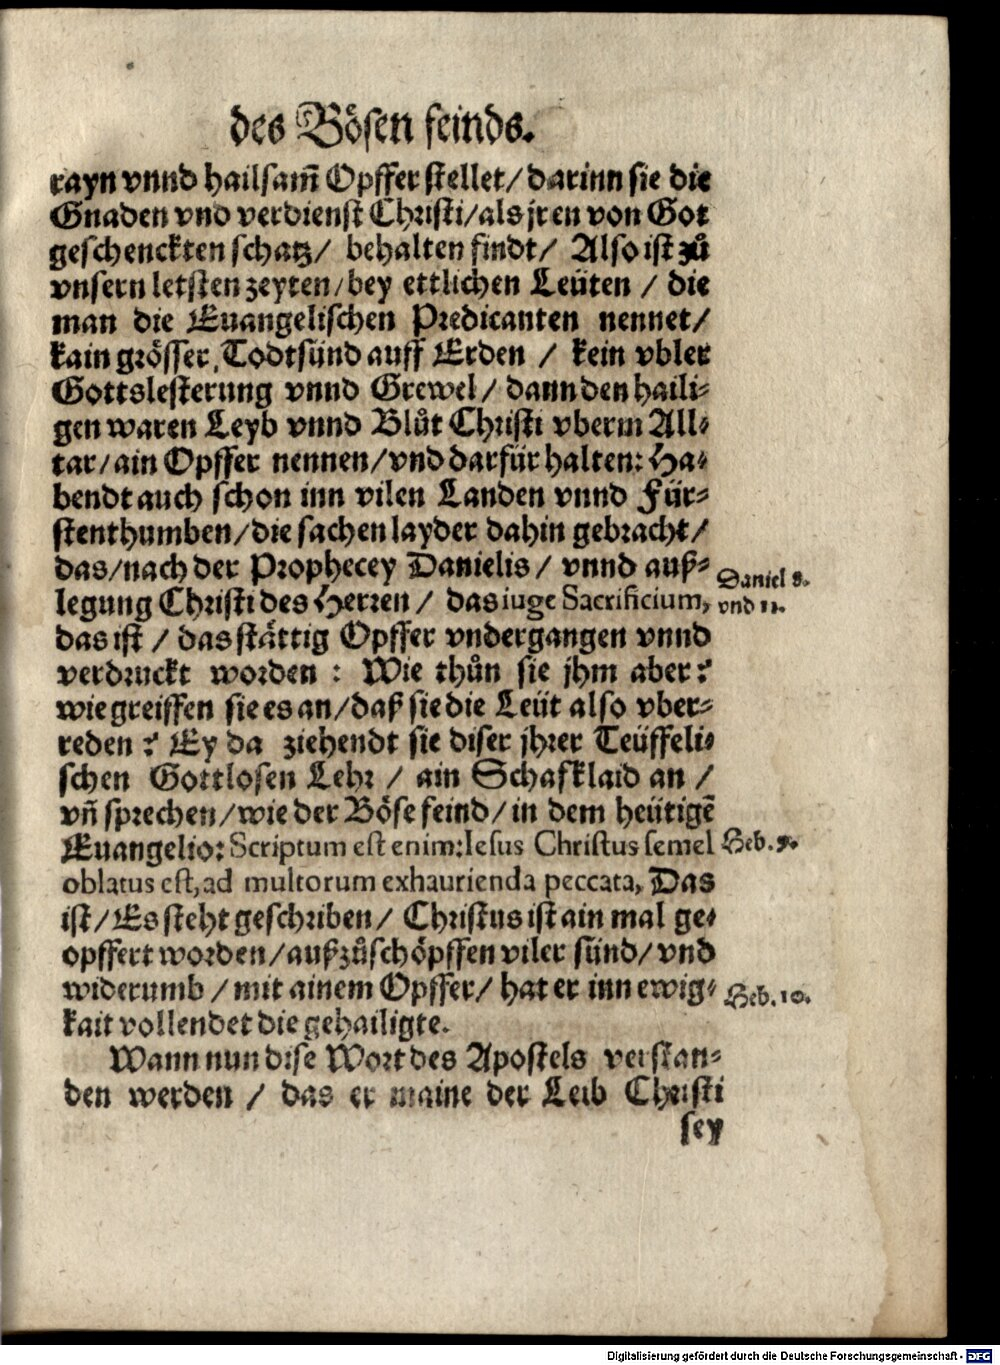 des Bösen feinds.
rayn vnnd hailsam̃ Opffer stellet/ darinn sie die
Gnaden vnd verdienst Christi/als jren von Got
geschenckten schatz/ behalten findt/ Also ist zů
vnsern letsten zeyten/bey ettlichen Leüten / die
man die Euangelischen Predicanten nennet/
kain grösser Todtsünd auff Erden / kein vbler
Gottslesterung vnnd Grewel/ dann den haili⸗
gen waren Leyb vnnd Blůt Christi vberm All⸗
tar/ain Opffer nennen/vnd darfür halten: Ha⸗
bendt auch schon inn vilen Landen vnnd Für⸗
stenthumben/die sachen layder dahin gebracht/
das/nach der Prophecey Danielis/ vnnd auß⸗
Daniel 8.
legung Christi des Herren / das iuge Sacrificium,
vnd 11.
das ist / das stättig Opffer vndergangen vnnd
verdruckt worden : Wie thůn sie jhm aber?
wie greiffen sie es an/daß sie die Leüt also vber⸗
reden ? Ey da ziehendt sie diser jhrer Teüffeli⸗
schen Gottlosen Lehr / ain Schafklaid an /
vñ sprechen/wie der Böse feind/in dem heütigẽ
Euangelio: Scriptum est enim: Iesus Christus semel
Heb. 9.
oblatus est, ad multorum exhaurienda peccata, Das
ist/Es steht geschriben/ Christus ist ain mal ge⸗
opffert worden/außzůschöpffen viler sünd/vnd
widerumb /mit ainem Opffer/ hat er inn ewig⸗
Heb. 10.
kait vollendet die gehailigte.
Wann nun dise Wort des Apostels verstan⸗
den werden / das er maine der Leib Christi
sey
Digitalisierung gefördert durch die Deutsche Forschungsgemeinschaft - DFG